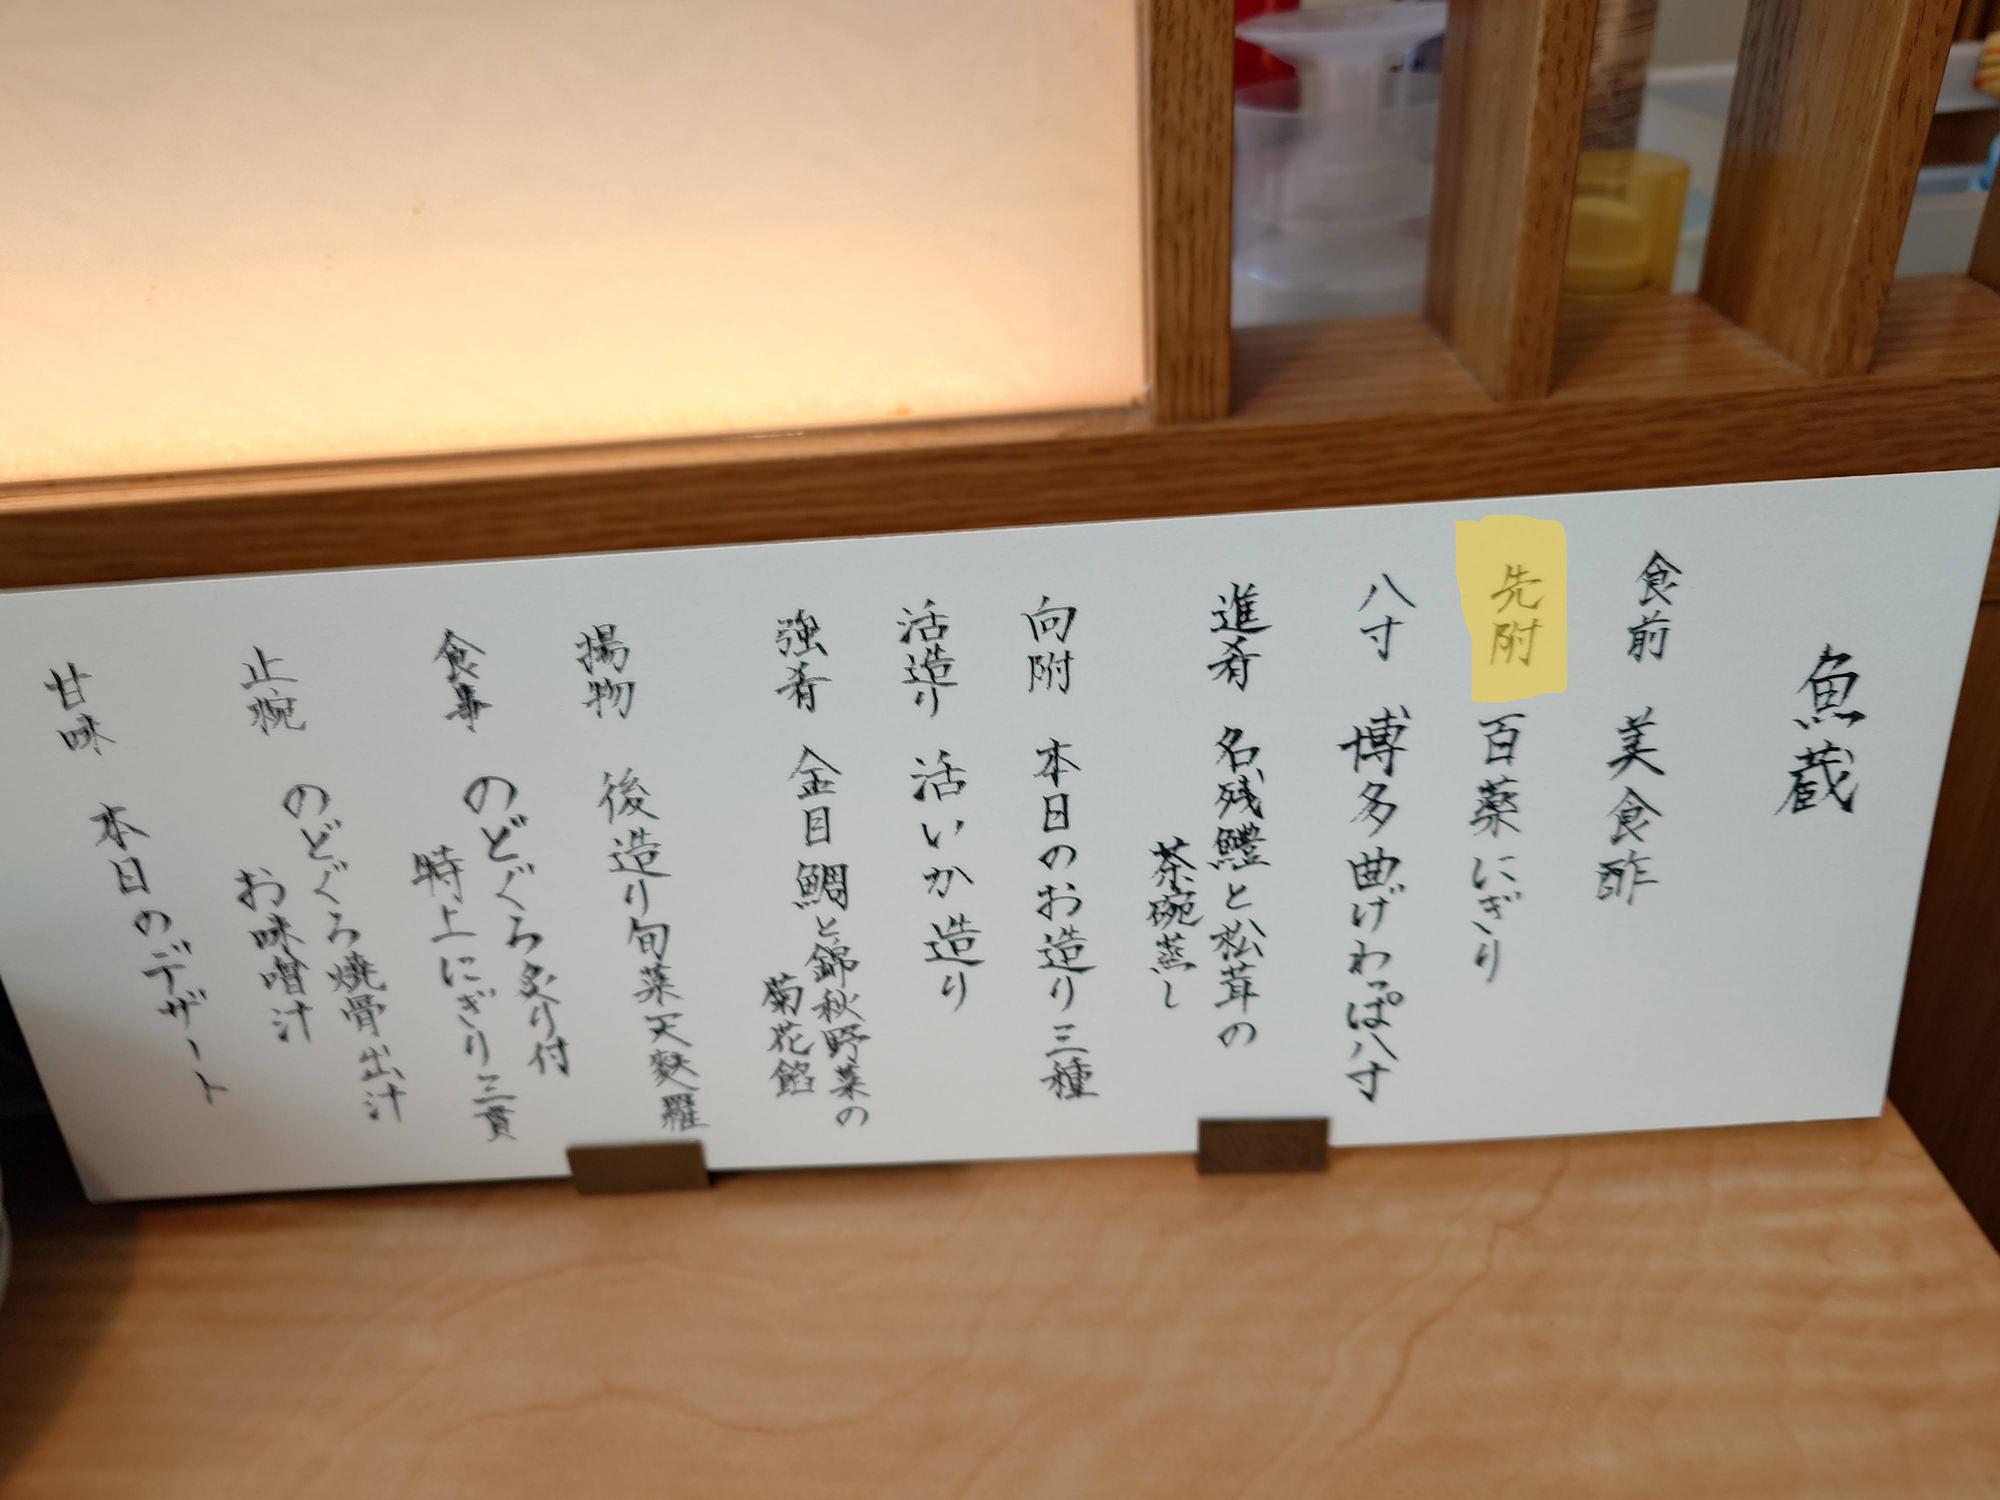 魚蔵
食前 美食酢
先附 百薬にぎり
八寸 博多曲げわっぱ八寸
進肴 名残鱧と松茸の
茶碗蒸し
向附 本日のお造り三種
活造り 活いか造り
強肴 金目鯛と錦秋野菜の
菊花餡
揚物 後造り旬菜天麩羅
食事 のどぐろ炙り付
特上にぎり三貫
止椀 のどぐろ焼骨出汁
お味噌汁
甘味 本日のデザート